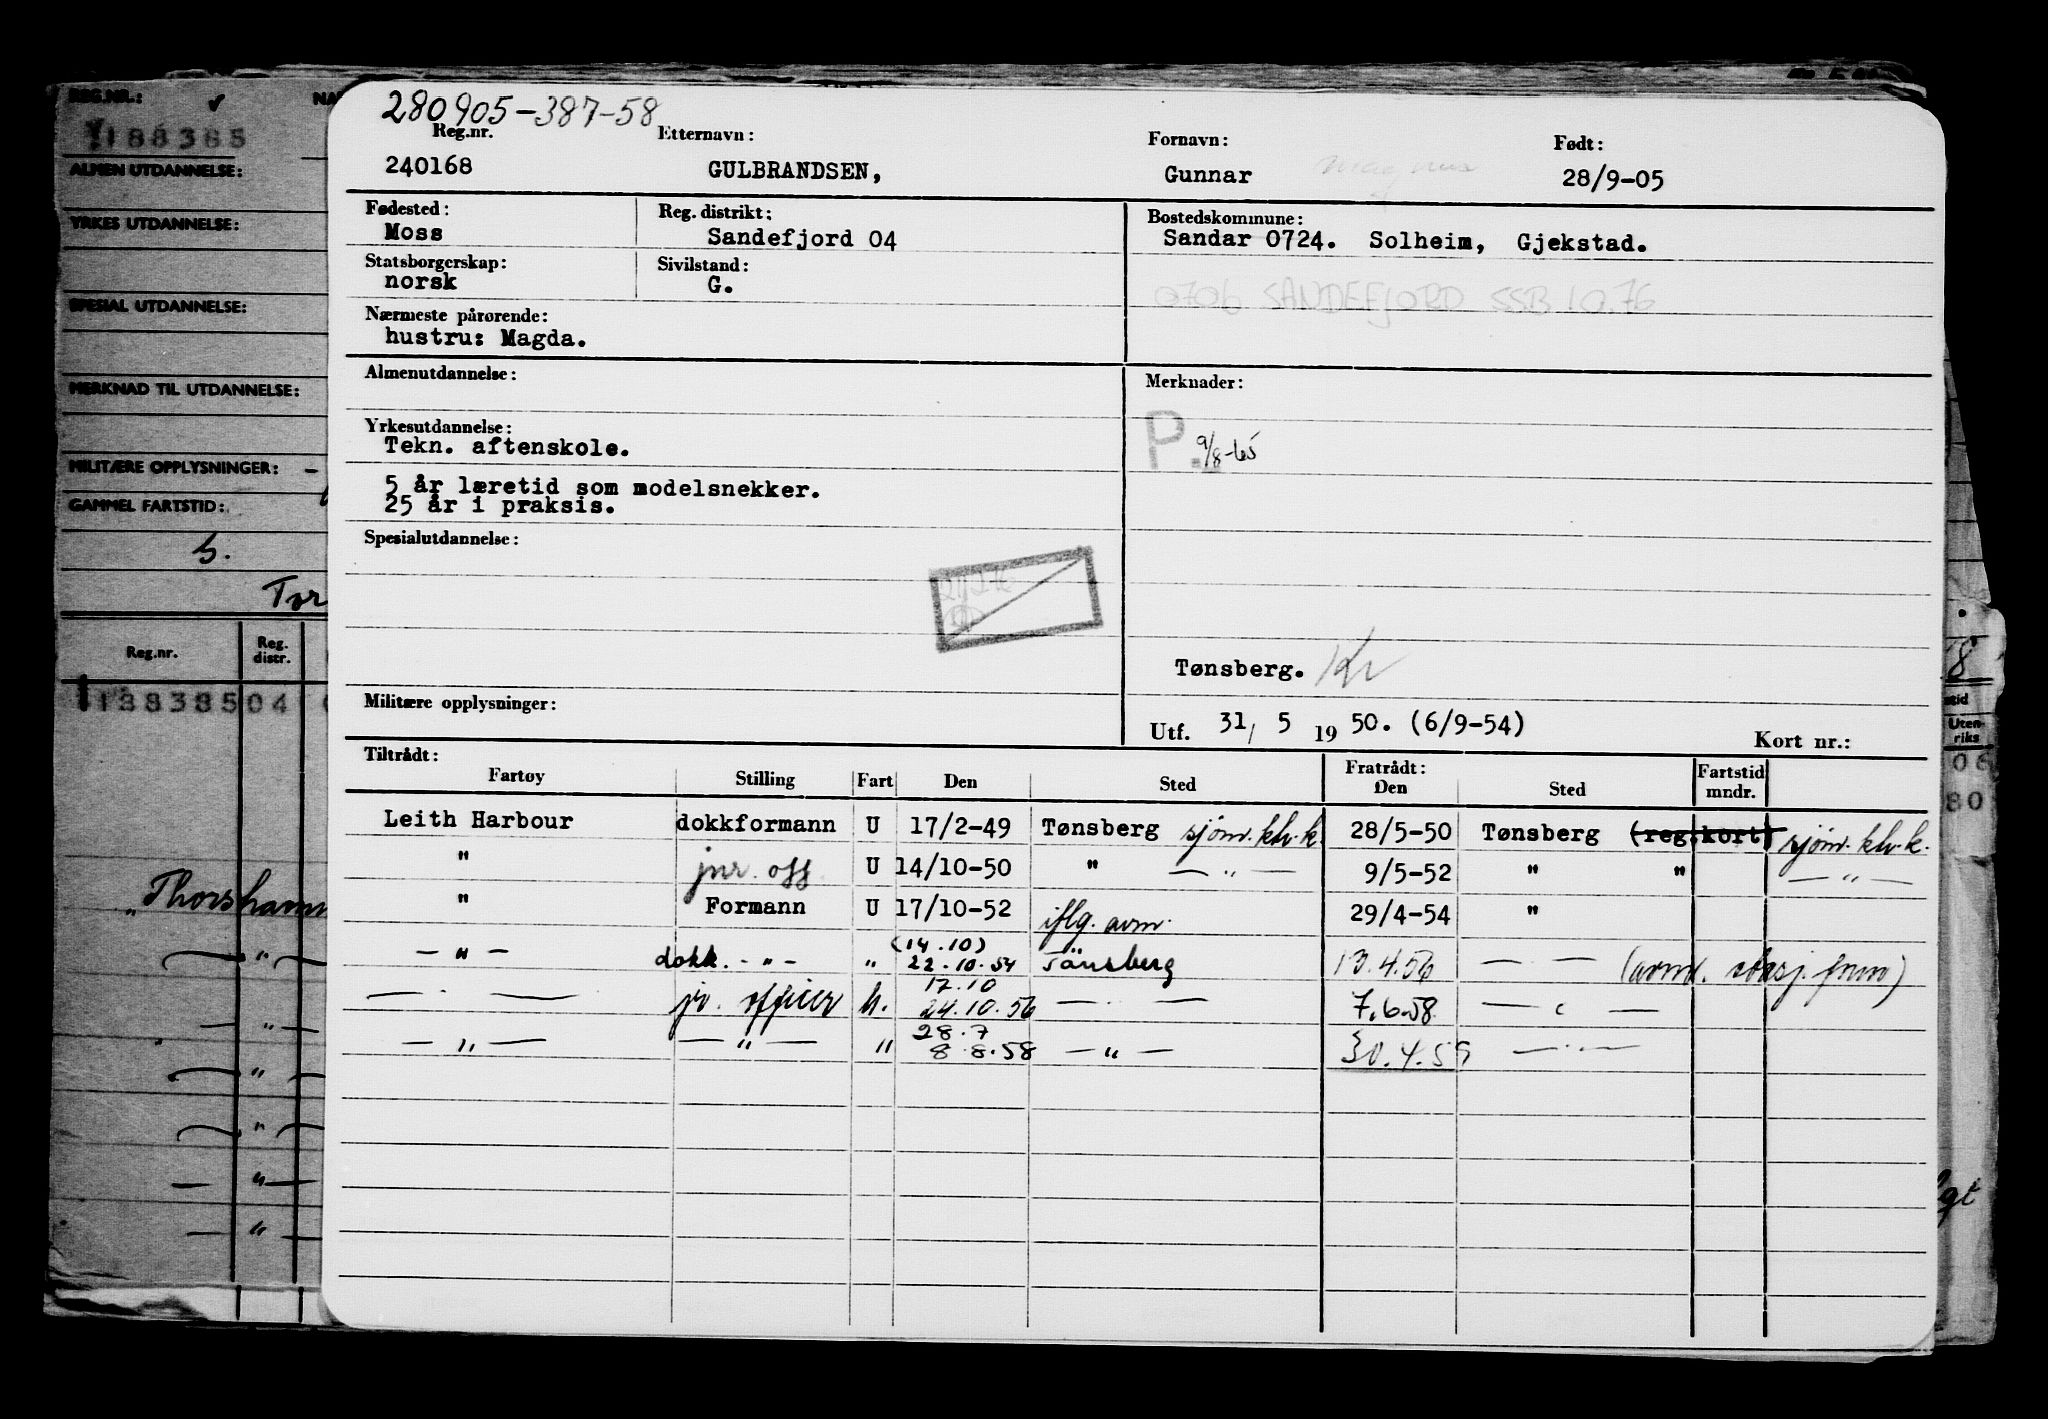 280905-387-58
Reg.nr. Etternavn: Fornavn: Født:
240168 GULBRANDSEN, Gunnar Magnus 28/9-05
Fødested: Reg. distrikt: Bostedskommune:
Moss Sandefjord 04 Sandar 0724. Solheim, Gjekstad.
Statsborgerskap: Sivilstand:
norsk G.
0706 SANDEFJORD SSB 10.76
Nærmeste pårørende:
hustru: Magda.
Almenutdannelse: Merknader:
P. 9/8-65
Yrkesutdannelse:
Tekn. aftenskole.
5 år læretid som modelsnekker.
25 år i praksis.
Spesialutdannelse:
Tønsberg. Kr
Militære opplysninger:
Utf. 31/ 5 19 50. (6/9-54) Kort nr.:
Tiltrådt: Fratrådt: Fartstid
Fartøy Stilling Fart Den Sted Den Sted mndr.
Leith Harbour dokkformann U 17/2-49 Tønsberg sjöm.ktr.k. 28/5-50 Tønsberg (reg.kort) sjöm.ktr.k.
" jnr. off U 14/10-50 " — " — 9/5-52 " " — " —
" Formann U 17/10-52 iflg. avm. 29/4-54 "
— " — dokk. - " - " (14.10) 22.10.54 Tönsberg 13.4.56 — . —
— . — jr. officer u. 17.10 24.10.56 — . — 7.6.58. — " —
— " — — " — " 28.7 8.8.58 — " — 30.4.59 — . —
REG.NR.: NA
188385
ALMEN UTDANNELSE:
YRKES UTDANNELSE:
SPESIAL UTDANNELSE:
MERKNAD TIL UTDANNELSE:
MILITÆRE OPPLYSNINGER: -
GAMMEL FARTSTID:
Tor
Reg.nr. Reg. distr.
138385 04
"Thorshamm
— " —
— " —
— " —
— " —
— " —
— " —
8
stid
Uten-
riks
06
80
gt